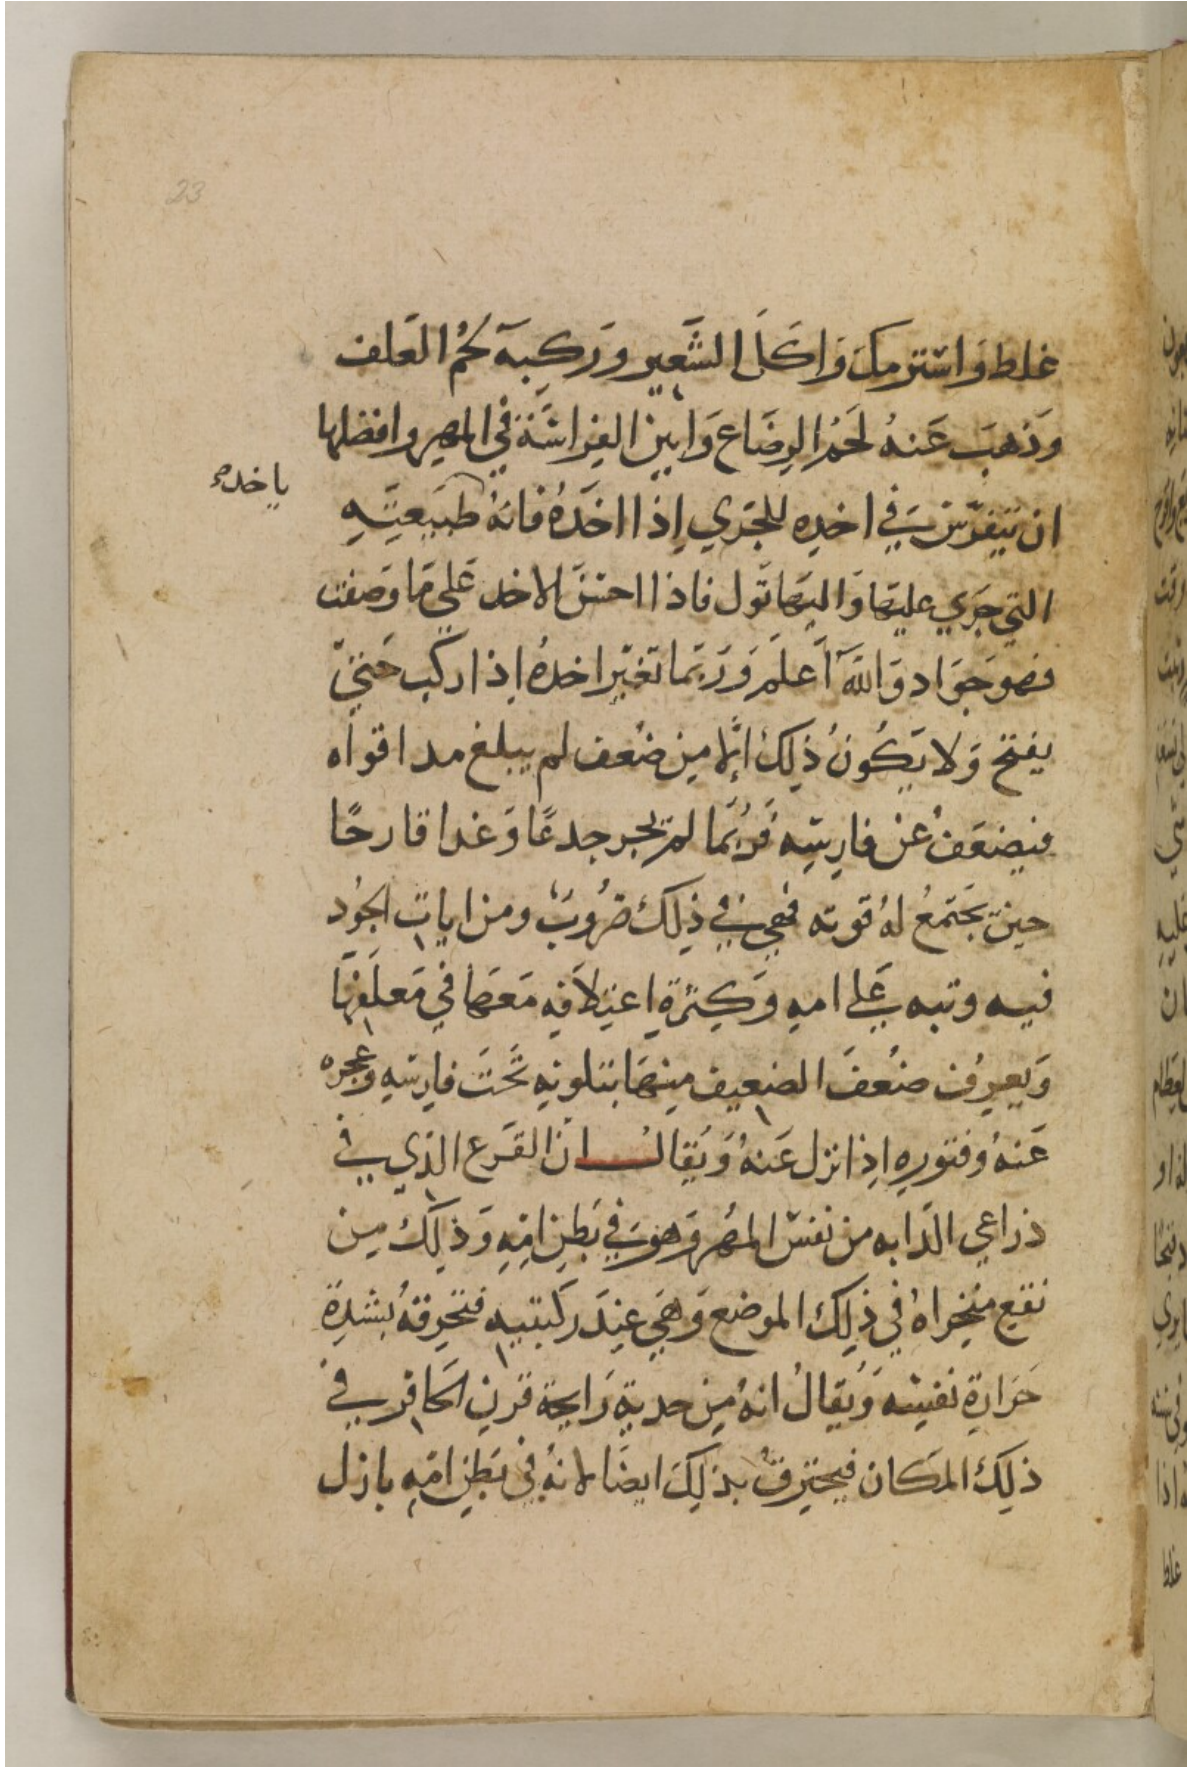 23
غلط وَاسْتَرمكَ وَاكَلَ الشَّعِير وَرَكِبَهُ لحُم العَلف
وَذهبَ عَنهُ لَحمُ الرِضَاع وَابين الفِراسَة في المهر وافضلها
ياخده
ان تتفرّس في اخدِه للجَري اِذا اخَدهُ فانهُ طبيعَتِهِ
التي جرَي عليهَا وَاليهَا تَول فاذا احسَنَ الاخد عَلي مَا وَصَفت
فهو جَوَاد وَاللّه اَعلَمَ وَرُبّما تغيّر اخدهُ اِذا ركب حَتيّ
يفتح وَلا يَكُونُ ذلِكَ اِلّا مِن ضُعف لم يبلغ مدا قواه
فيضعَفُ عَنْ فارِسِه فَرُبّما لم يجر جدعًا وَغدا قارحًا
حينَ تجتَمعُ لهُ قوته فهي في ذلِكَ ضُروبُ ومن اياتِ الجُود
فيه وثبه عَلي امهِ وَكثرةِ اعتِلافهِ مَعَهَا في مَعلَفهَا
وَيعرِف ضُعفَ الضعِيف مِنهَا بتلونهِ تَحَتَ فارِسِهِ وعجزه
عَنهُ وفتورهِ اِذا نزل عَنهُ وَيُقالُ ان القَرع الذِي في
ذراعي الدَابه من نفسْ المهُر وَهوَ في بَطنِ امّهِ وَذلِكَ مِن
تقع منخِراهُ في ذلِكَ الموضع وَهي عِندَ ركبتيهِ فتحرقهُ بشدِة
حَرَارة نفسِه وَيُقالُ انهُ مِن حدةِ رَايحة قرنِ الحَافِر في
ذلِكَ المَكان فيحترقُ بذلِكَ ايضَا لانهُ في بَطنِ امّهِ بازل